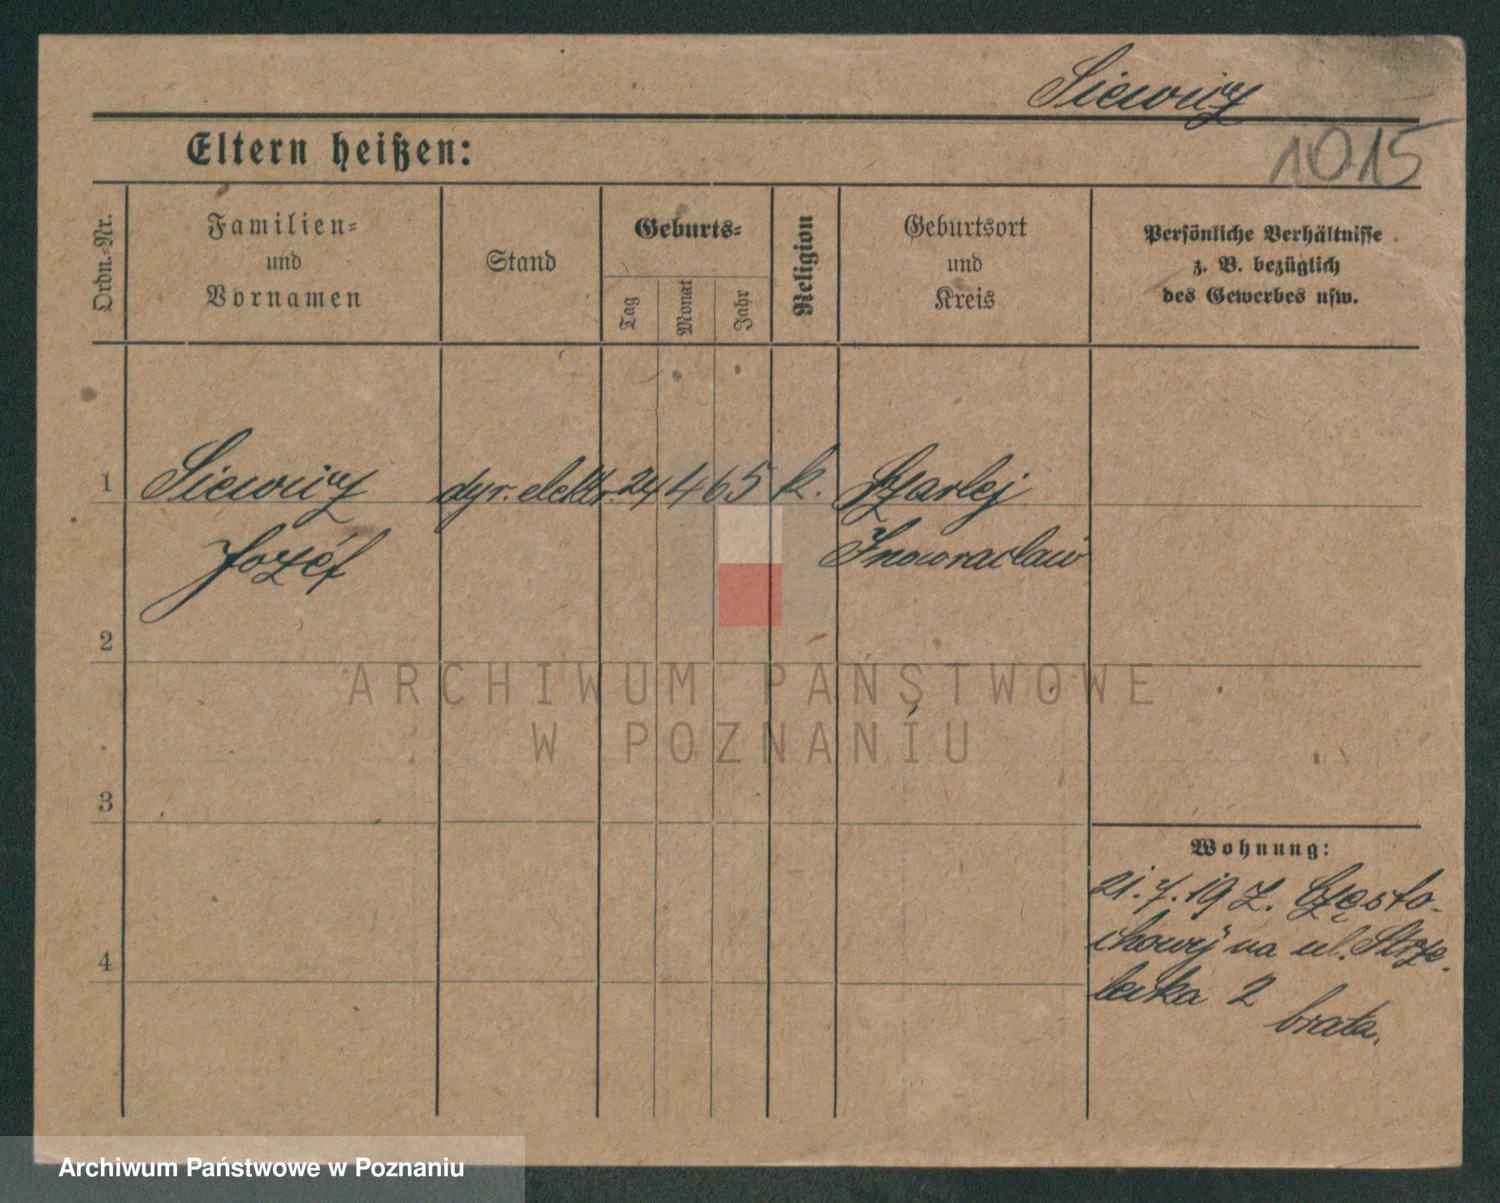 Siewicz
Eltern heißen:
1015
Ordn.-Nr.
Familien-
und
Vornamen
Stand
Geburts-
Tag
Monat
Jahr
Religion
Geburtsort
und
Kreis
Persönliche Verhältnisse
z. B. bezüglich
des Gewerbes usw.
1 Siewicz dyr. elektr. 24 4 65 k. Szarlej
Józef Inowracław
2
ARCHIWUM PAŃSTWOWE
W POZNANIU
3
Wohnung:
21.7.19 z. Często-
chowy na ul. Strze-
4
lecka 2
brata.
Archiwum Państwowe w Poznaniu